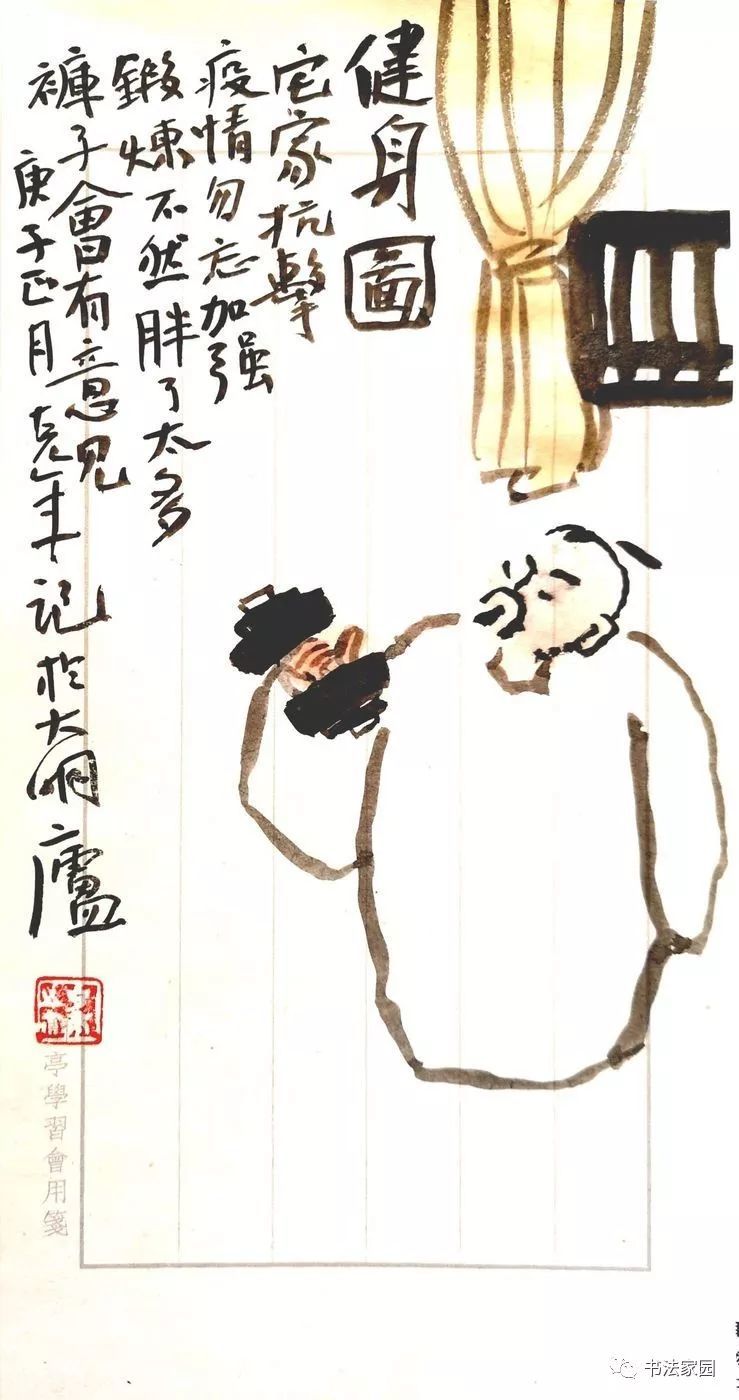 健身圖
宅家抗擊
疫情勿忘加强
鍛煉不然胖了太多
褲子會有意見
庚子正月克年記於大明廬
亭學習會用箋
书法家园